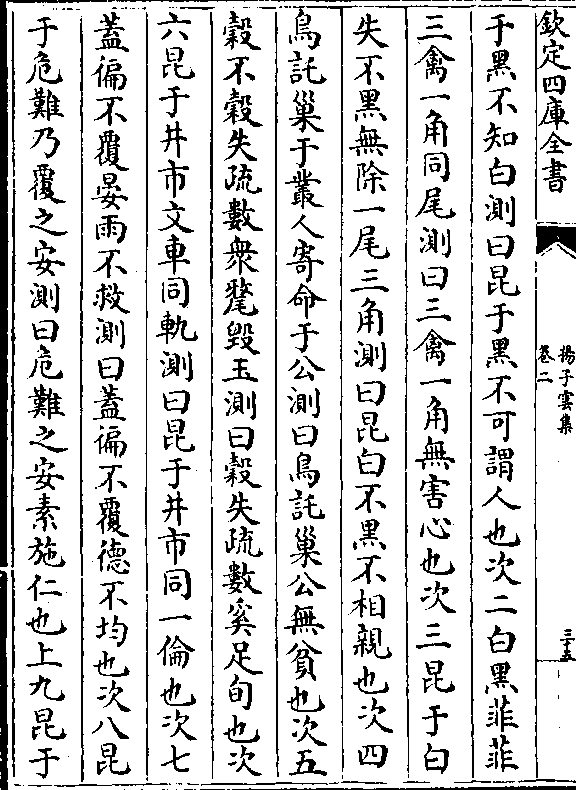 欽定四庫全書
揚子雲集
卷二
三十五
于黑不知白測曰昆于黑不可謂人也次二白黑菲菲
三禽一角同尾測曰三禽一角無害心也次三昆于白
失不黑無除一尾三角測曰昆白不黑不相親也次四
鳥託巢于叢人寄命于公測曰鳥託巢公無貧也次五
穀不穀失疏數衆氂毀玉測曰穀失疏數奚足旬也次
六昆于井市文車同軌測曰昆于井市同一倫也次七
蓋徧不覆晏雨不救測曰蓋徧不覆德不均也次八昆
于危難乃覆之安測曰危難之安素施仁也上九昆于